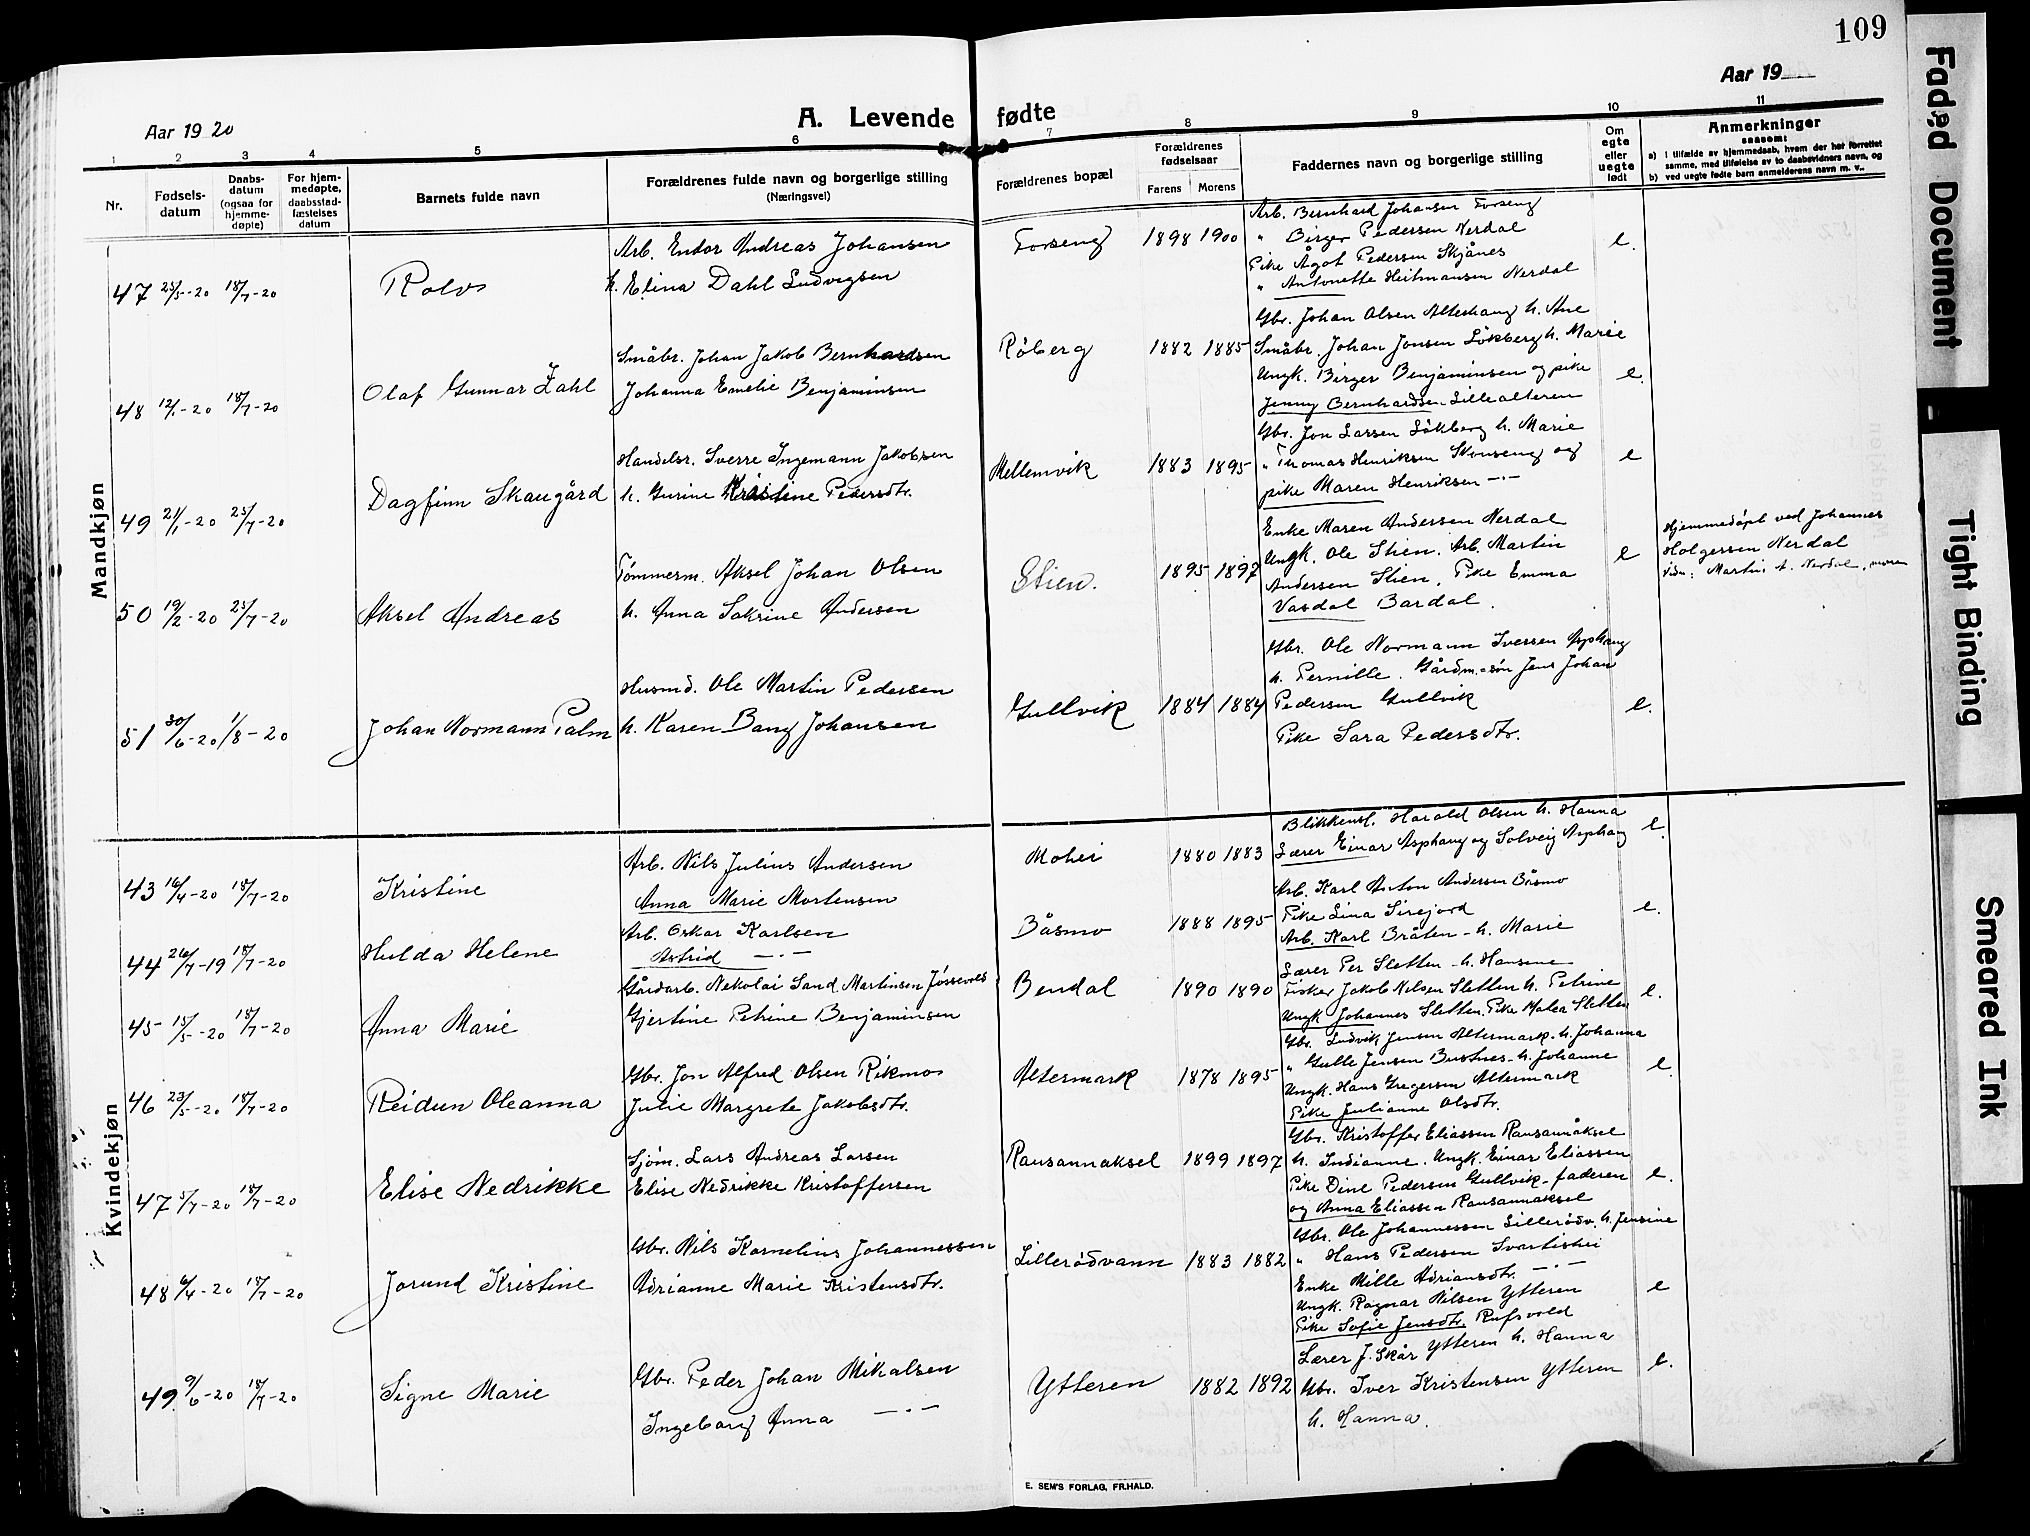 109
Aar 1920
A. Levende fødte
Aar 19
1 2 3 4 5 6 7 8 9 10 11
Nr.
Fødsels-datum
Daabs-datum (ogsaa for hjemme-døpte)
For hjem-medøpte, daabsstad-fæstelses datum
Barnets fulde navn
Forældrenes fulde navn og borgerlige stilling
(Næringsvei)
Forældrenes bopæl
Forældrenes fødselsaar
Farens Morens
Faddernes navn og borgerlige stilling
Om egte eller uegte født
Anmerkninger
saasom:
a) i tilfælde av hjemmedaab, hvem der har forrettet samme, med tilføielse av to daabsvidners navn, og
b) ved uegte fødte barn anmelderens navn m. v..
Mandkjøn
47 25/5-20 18/7-20 Rolv
Arb. Endor Andreas Johansen
h. Elina Dahl Ludvigsen
Forseng 1898 1900
Arb. Bernhard Johansen Forseng
" Birger Pedersen Nerdal
Pike Ågot Pedersen Skjånes
" Antonette Heitmansen Nerdal
e.
48 12/1-20 18/7-20 Olaf Gunnar Zahl
Småbr. Johan Jakob Bernhardsen
Johanna Emelie Benjaminsen
Røberg 1882 1885
Gbr. Johan Olsen Alterhaug h. Ane
Småbr. Johan Jonsen Løkberg h. Marie
Ungk. Birger Benjaminsen og pike
Jenny Bernhardsen Lillealteren
e.
49 21/1-20 25/7-20 Dagfinn Skaugård
Handelsr. Sverre Ingemann Jakobsen
h. Gurine Kristine Pedersdtr.
Mellemvik 1883 1895
Gbr. Jon Larsen Løkberg h. Marie
" Thomas Henriksen Skonseng og
pike Maren Henriksen -"-
e
50 19/2-20 25/7-20 Aksel Andreas
Tømmerm. Aksel Johan Olsen
h. Anna Sakrine Andersen
Stien. 1895 1897
Enke Maren Andersen Nerdal
Ungk. Ole Stien. Arb. Martin
Andersen Stien, Pike Emma
Vasdal Bardal.
e
Hjemmedøpt ved Johannes
Holgersen Nerdal
Vidn: Martin A. Nerdal, moren
51 30/6-20 1/8-20 Johan Normann Palm
Husmd. Ole Martin Pedersen
h. Karen Bang Johansen
Gullvik 1884 1884
Gbr. Ole Normann Iversen Asphaug
h. Pernille. Gårdm.søn Jens Johan
Pedersen Gullvik
Pike Sara Pedersdtr.
e.
Kvindekjøn
43 16/4-20 18/7-20 Kristine
Arb. Nils Julius Andersen
Anna Marie Mortensen
Mohei 1880 1883
Blikkensl. Harald Olsen h. Hanna
Lærer Einar Asphaug og Solveig Asphaug
e.
44 26/7-19 18/7-20 Hulda Helene
Arb. Oskar Karlsen
Astrid -"-
Båsmo 1888 1895
Arb. Karl Anton Andersen Båsmo
Pike Lina Sirejord
Arb. Karl Bråten - h. Marie
e.
45 15/5-20 18/7-20 Anna Marie
Gårdarb. Nekolai Sand Martinsen Jøssevold
Gjertine Petrine Benjaminsen
Bendal 1890 1890
Lærer Per Sletten - h. Hansine
Fisker Jakob Nilsen Sletten h. Petrine
Ungk Johannes Sletten. Pike Malea Sletten
e.
46 23/5-20 18/7-20 Reidun Oleanna
Gbr. Jon Alfred Olsen Rikmo
Julie Margrete Jakobsdtr.
Altermark 1878 1895
Gbr. Ludvik Jensen Altermark - h. Johanna
" Gulle Jensen Bustnes - h. Johanne
Ungk. Hans Gregersen Altermark
Pike Julianne Olsdtr.
e.
47 5/7-20 18/7-20 Elise Nedrikke
Sjøm. Lars Andreas Larsen
Elise Nedrikke Kristoffersen
Ransannaksel 1899 1897
Gbr. Kristoffer Eliassen Ransannaksel
h. Indianne. Ungk. Einar Eliassen
Pike Dine Pedersen Gullvik - faderen
og Anna Eliassen Ransannaksel
e.
48 6/4-20 18/7-20 Jorund Kristine
Gbr. Nils Kornelius Johannessen
Adrianne Marie Kristensdtr.
Lillerødvann 1883 1882
Gbr. Ole Johannessen Lillerødv. h. Jensine
" Hans Pedersen Svartishei
Enke Mille Adriansdtr. -"-
Ungk. Ragnar Nilsen Ytteren
Pike Sofie Jensdtr. Rufsvold
e
49 9/6-20 18/7-20 Signe Marie
Gbr. Peder Johan Mikalsen
Ingeborg Anna -"-
Ytteren 1882 1892
Lærer J. Skår Ytteren h. Hanna
Gbr. Iver Kristensen Ytteren
h. Hanna.
e.
E. SEM'S FORLAG, FR.HALD.
Faded Document
Tight Binding
Smeared Ink